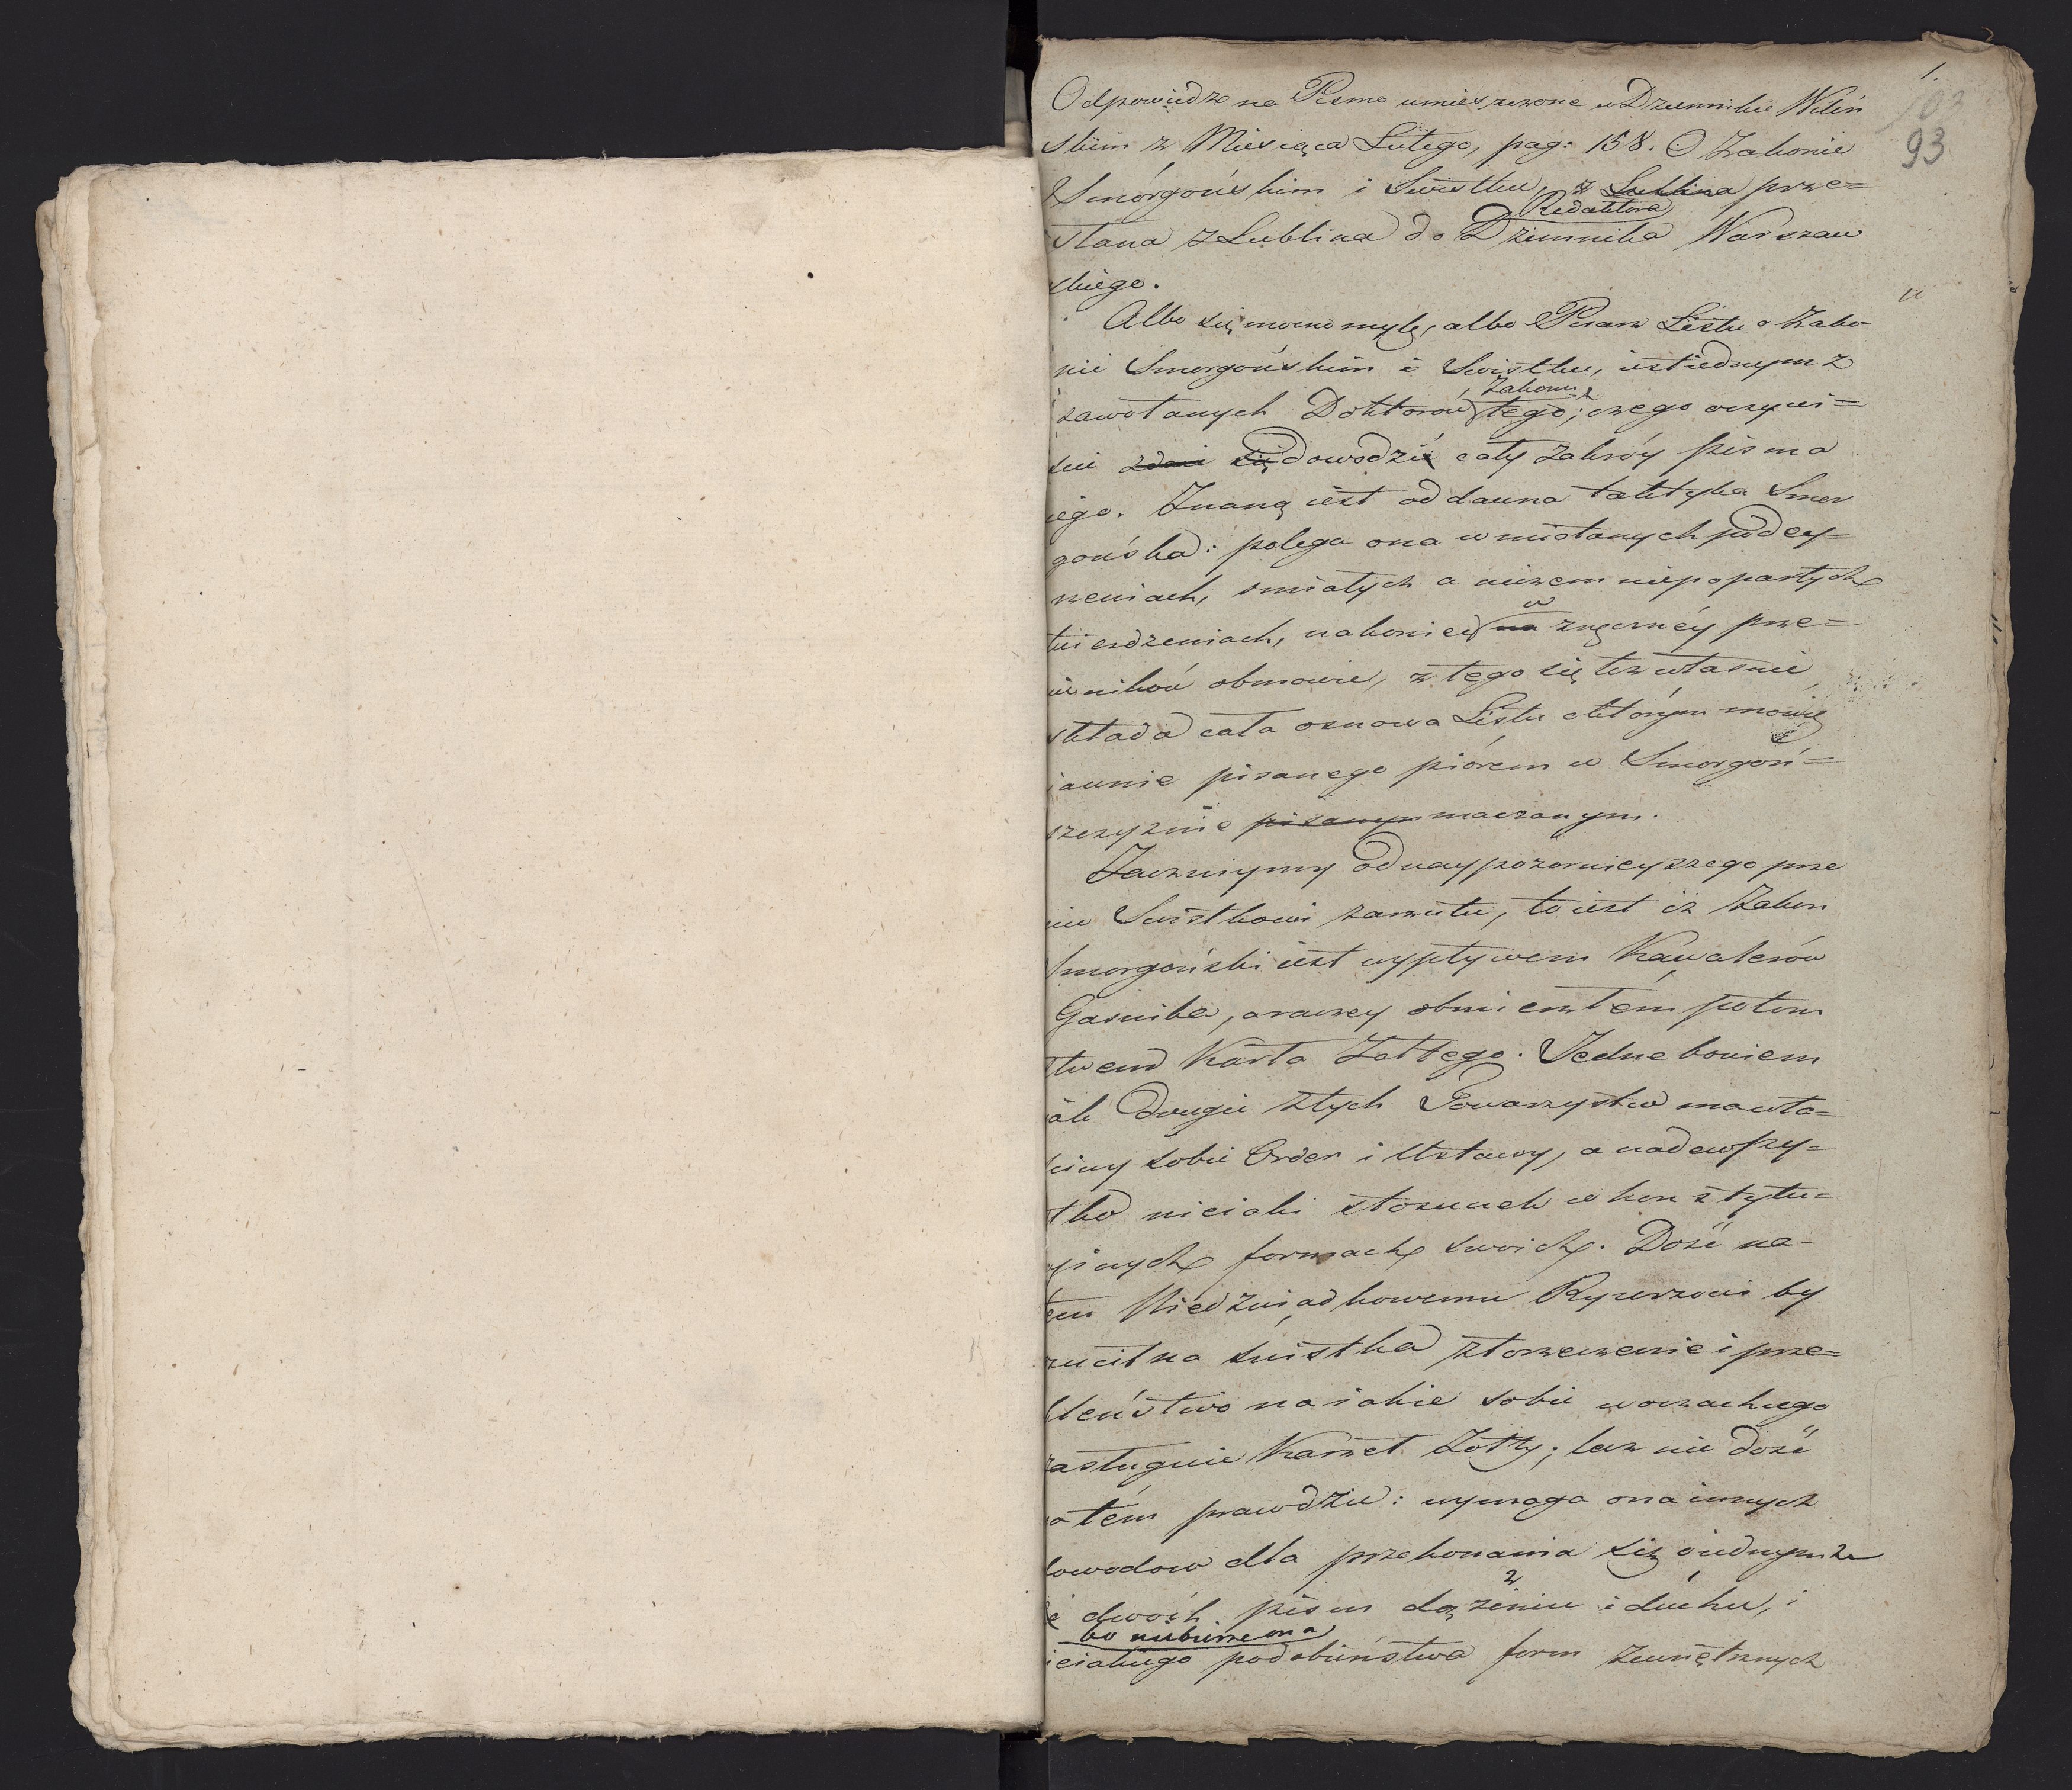 1.
103
93
Odpowiedź na Pismo umieszczone w Dzienniku Wileń
skim z Miesiąca Lutego, pag: 158. O Zakonie
Smorgońskim i Świstku, z Lublina prze=
Redaktora
słana z Lublina do Dziennika Warszaw
skiego.
Albo się mocno mylę, albo Pisarz Listu o Zako-
nie Smorgońskim i Swistku, iest iednym z
Zakonu
zawołanych Doktorów tego; czego oczywi=
ście zdaie się dowodzić cały zakróy pisma
iego. Znaną iest od dawna taktyka Smor
gońska: polega ona w miotanych podey=
rzeniach, smiałych a niczem niepopartych
w
twierdzeniach, nakoniec na zręczney prze=
ciwników obmowie, z tego się też własnie
składa cała osnowa Listu o którym mowię
iawnie pisanego piórem w Smorgoń=
szczyznie pisanym maczanym.
Zacznijmy od naypozornieyszego prze
ciw Swistkowi zarzutu, to iest iż Zakon
Smorgoński iest wypływem Kawalerów
Gasnika, a raczey obmierzłem potom
stwem Karła Żółtego. Jedne bowiem
iak drugie z tych Towarzystw ma wła=
sciwy sobie Order i Ustawy, a nadewszy=
stko nieiaki stosunek w konstytu=
cyinych formach swoich. Dość na-
tem Niedźwiadkowemu Rycerzowi by
rzucił na swistka złorzeczenie i prze=
kleństwo na iakie sobie w oczach iego
zasługuie Karzeł Żółty; lecz nie dość
na tém prawdzie: wymaga ona innych
dowodow dla przekonania się o iednym ze
2
dwoch pism dążeniu i duchu, i
bo nie burze ona
ieiakiego podobieństwa form zewnętrznych